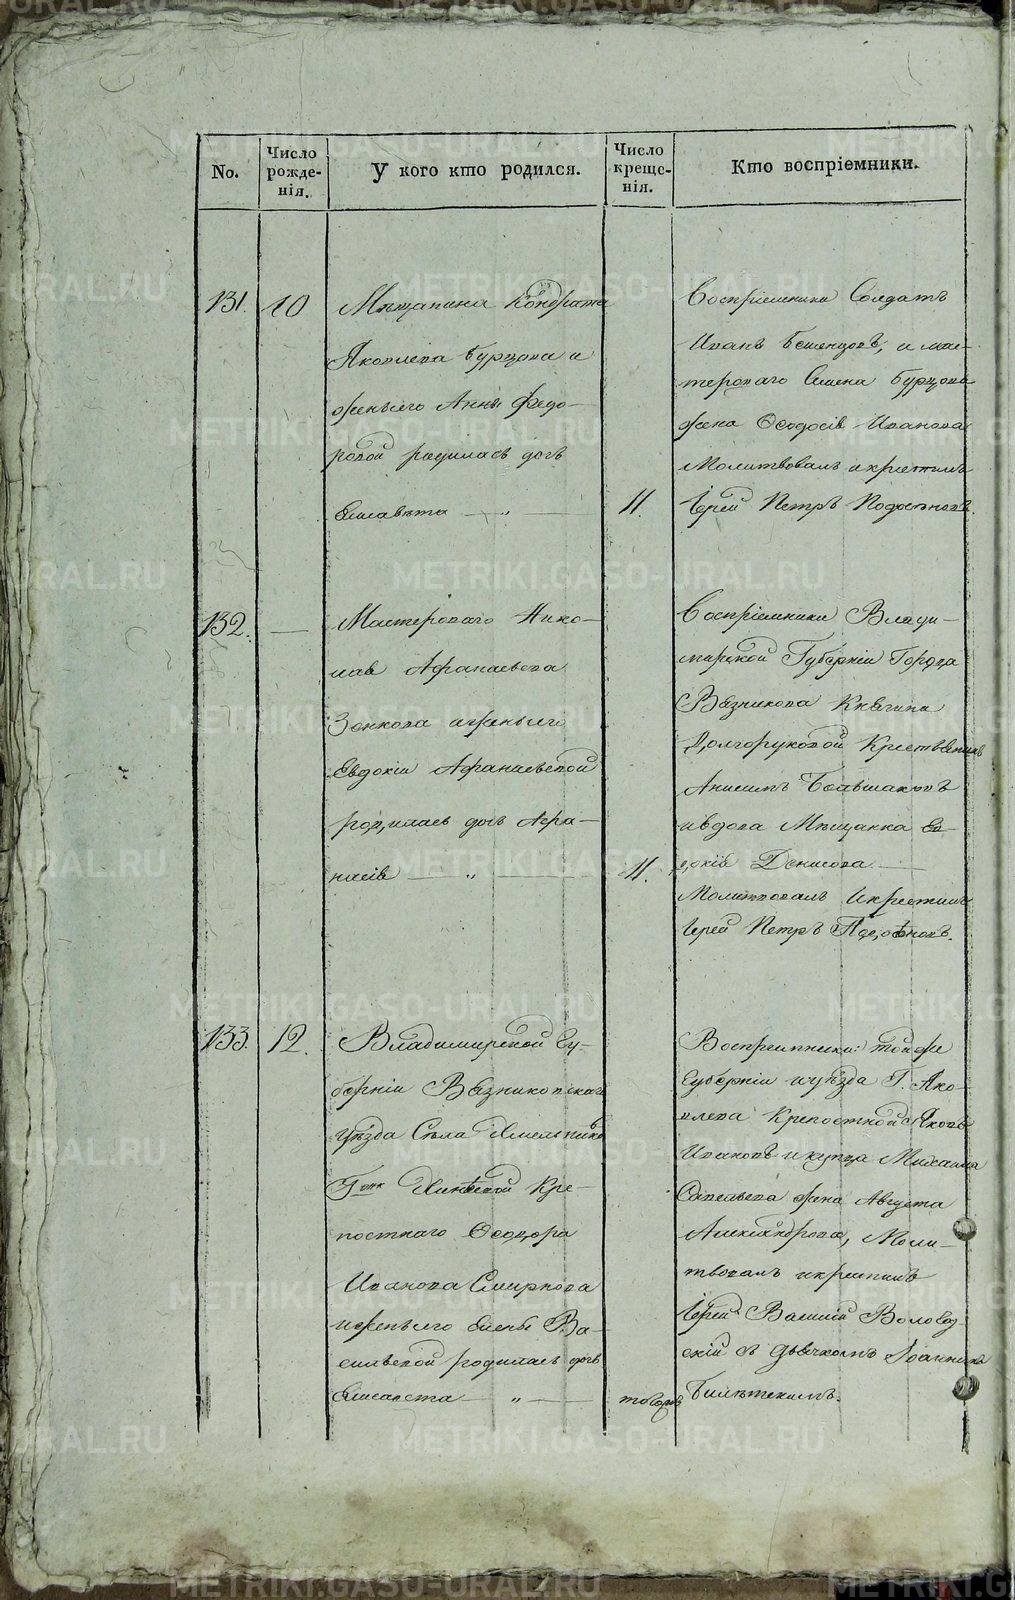 No.
Число рожде-нія.
У кого кто родился.
Число креще-нія.
Кто воспріемники.
131.
10
Мѣщанина Кондрата
Яковлева Бурцова и
женыего Анны Федо-
ровой родилась дочь
Елисавета — „ —
11.
Воспріемники Солдатъ
Иванъ, и мас-
тероваго Семена Бурцова
жена Ѳеодосія Иванова
Молитвовалъ икрестилъ
Іерей Петръ
132.
—
Мастероваго Нико-
лая Афанасьева
Зонкова иженыего
Евдокіи Афанасьевой
родилась дочь Афа-
насія — „
11.
Воспріемники Влади-
мирской Губерніи Города
Вязникова Княгини
Долгоруковой Крестьянинъ
Анисимъ Большаковъ
ивдова Мѣщанка Ев-
докія Денисова —
Молитвовалъ Икрестилъ
Іерей Петръ
133.
12.
Владимирской Гу-
берніи Вязниковскаго
Уѣзда Села
Г Кре-
постнаго Ѳеодора
Иванова Смирнова
иженыего Елены Ва-
сильевой родилась дочь
Елисавета — „ —
Воспріемники: тойже
Губерніи иуѣзда Г. Яко-
влева Крепостной Яковъ
Ивановъ икупца Михаила
Савельева жена Августа
Александрова, Моли-
твовалъ икрестилъ
Іерей Василій
съ Дьячкомъ
METRIKI.GASO-URAL.RU